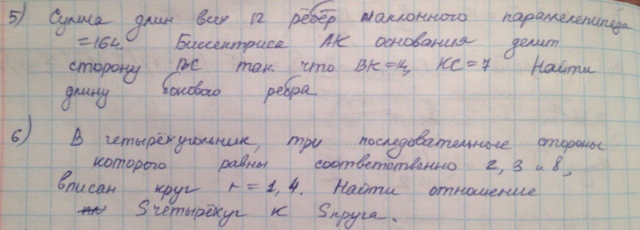 5) Сумма длин всех 12 рёбер наклонного параллелепипеда
= 164. Биссектриса АК основания делит
сторону ВС так что ВК=14, КС=7 Найти
длину бокового ребра
6) В четырёхугольник, три последовательные стороны
которого равны соответственно 2, 3 и 8,
вписан круг r = 1,4. Найти отношение
Sчетырёхуг к Sкруга.